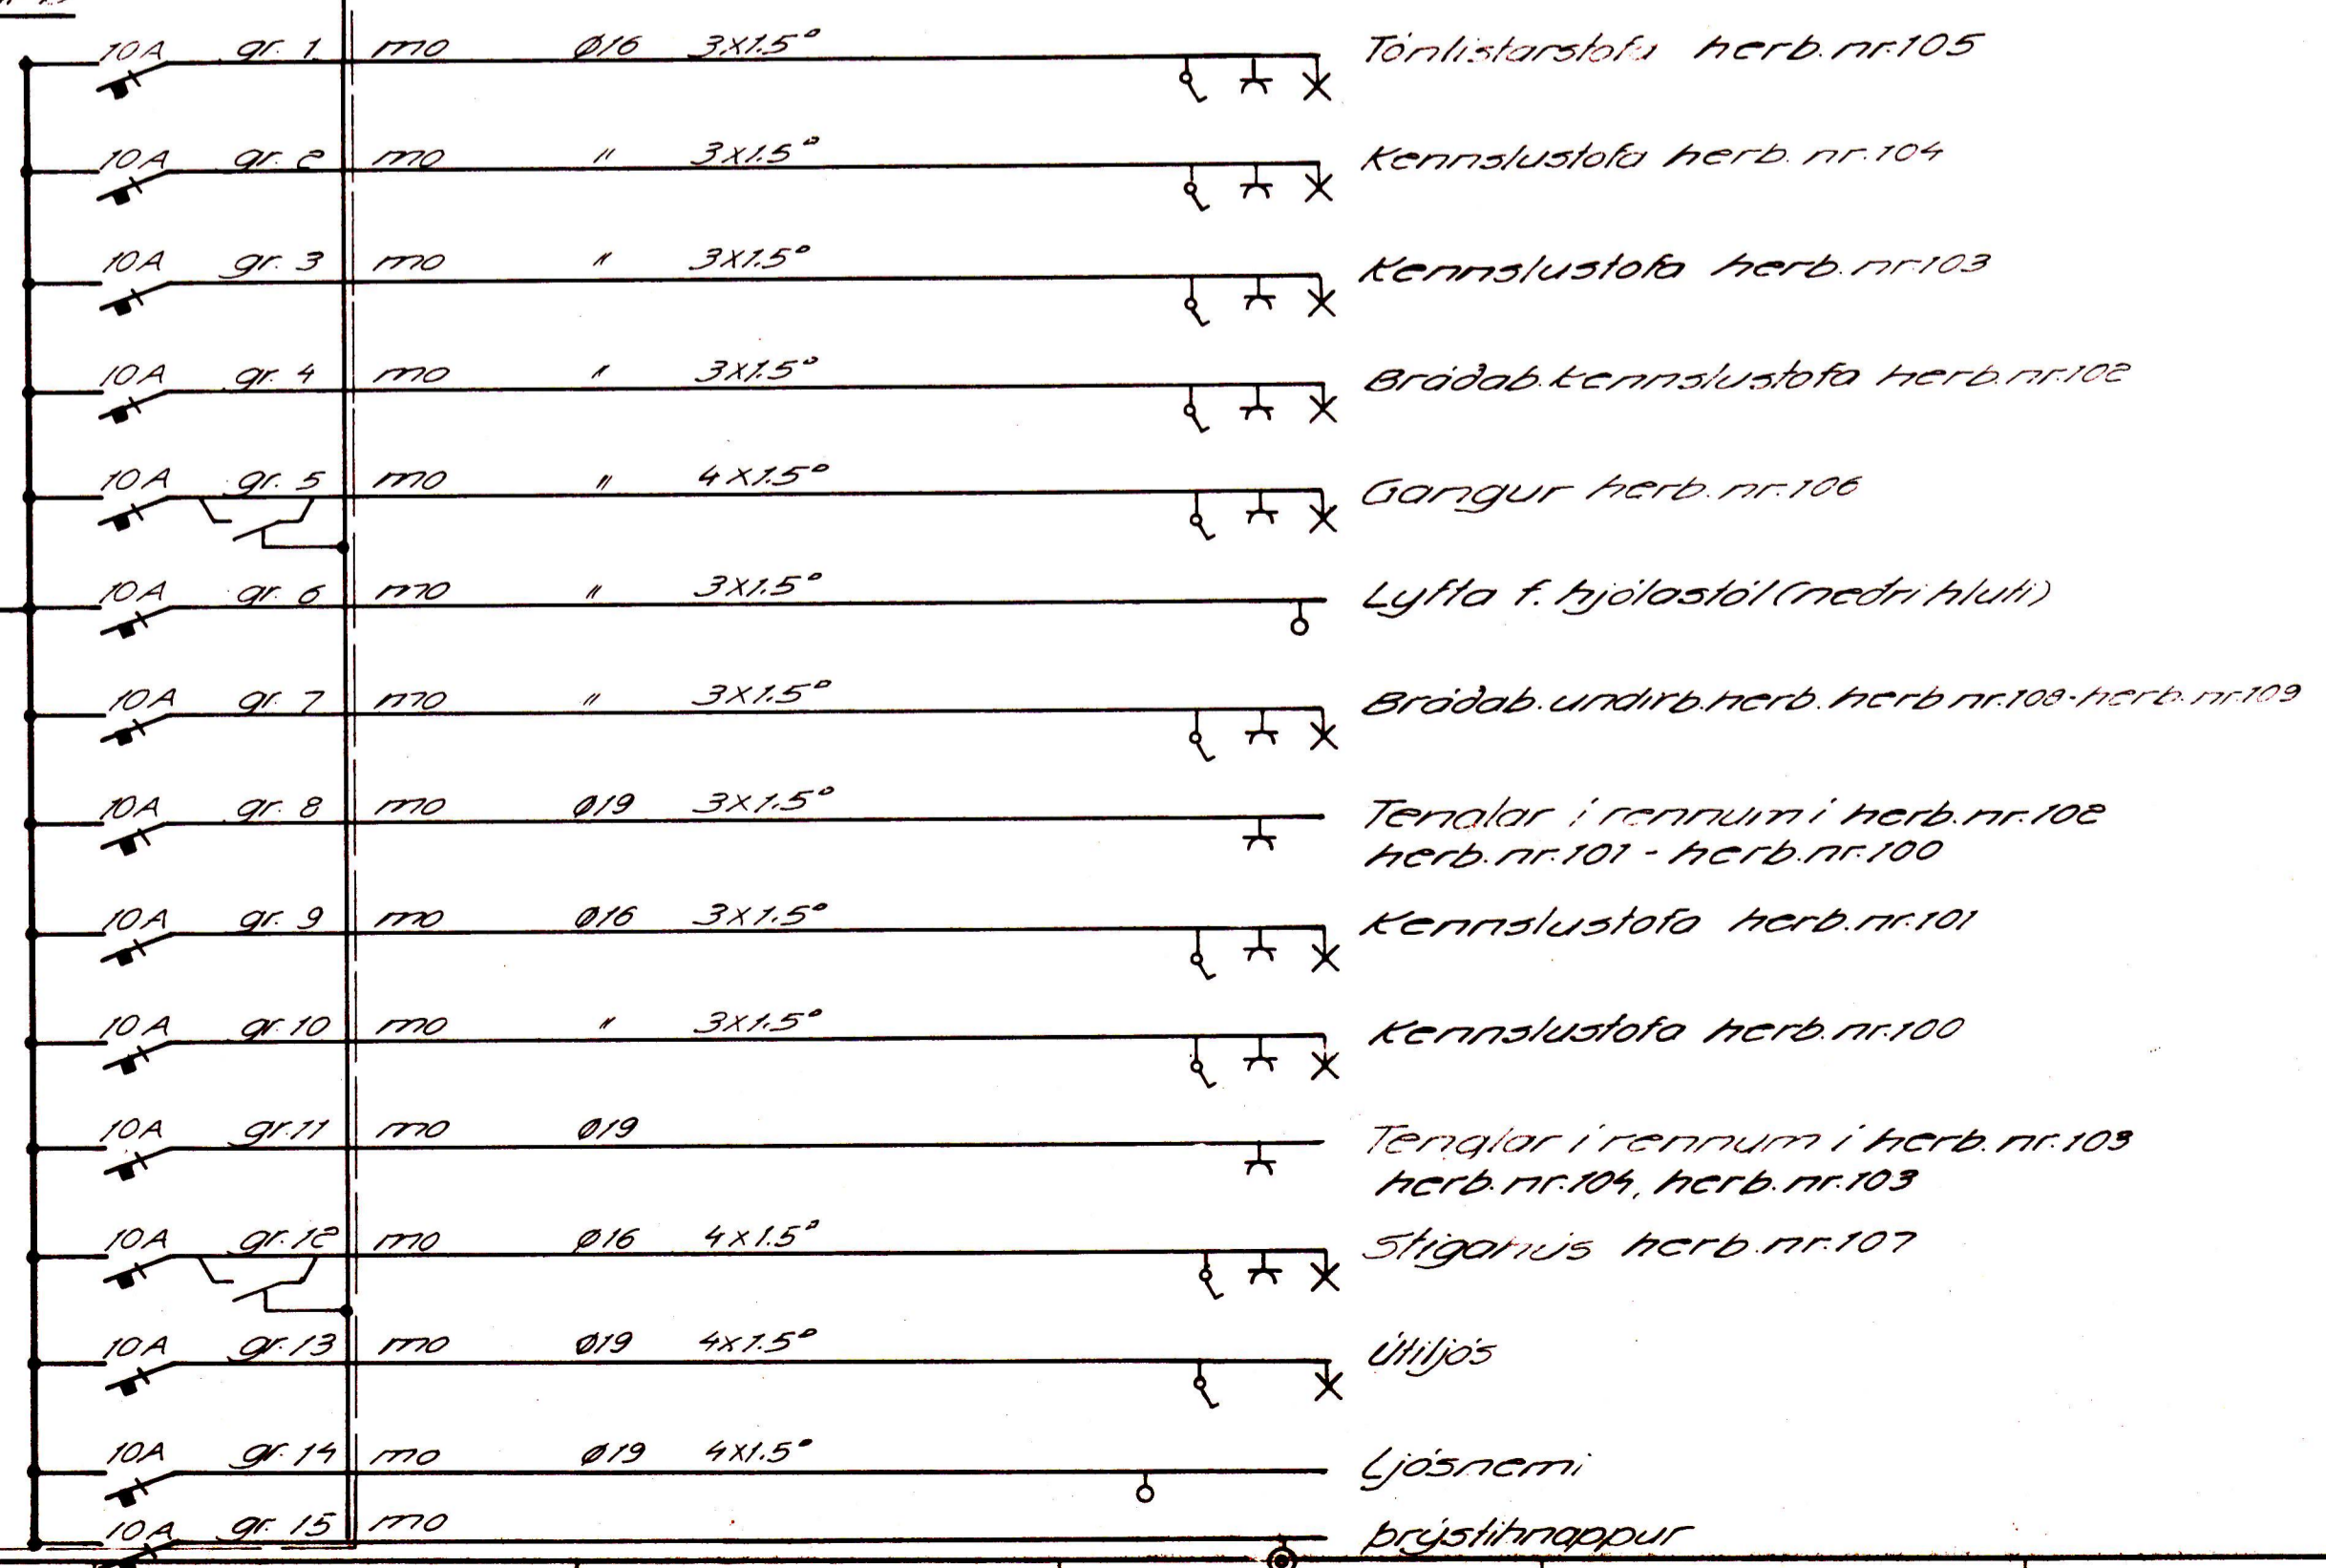 10A gr. 1 mo ø16 3x1.5▫ Tónlistarstofa herb. nr. 105
10A gr. 2 mo " 3x1.5▫ Kennslustofa herb. nr. 104
10A gr. 3 mo " 3x1.5▫ Kennslustofa herb. nr. 103
10A gr. 4 mo " 3x1.5▫ Bráðab. kennslustofa herb. nr. 102
10A gr. 5 mo " 4x1.5▫ Gangur herb. nr. 106
10A gr. 6 mo " 3x1.5▫ Lyfta f. hjólastól (neðri hluti)
10A gr. 7 mo " 3x1.5▫ Bráðab. undirb. herb. herb nr. 108 - herb. nr. 109
10A gr. 8 mo ø19 3x1.5▫ Tenglar í rennum í herb. nr. 102
herb. nr. 101 - herb. nr. 100
10A gr. 9 mo ø16 3x1.5▫ Kennslustofa herb. nr. 101
10A gr. 10 mo " 3x1.5▫ Kennslustofa herb. nr. 100
10A gr. 11 mo ø19 Tenglar í rennum í herb. nr. 103
herb. nr. 104, herb. nr. 103
10A gr. 12 mo ø16 4x1.5▫ Stigahús herb. nr. 107
10A gr. 13 mo ø19 4x1.5▫ Útiljós
10A gr. 14 mo ø19 4x1.5▫ Ljósnemi
10A gr. 15 mo þrýstihnappur